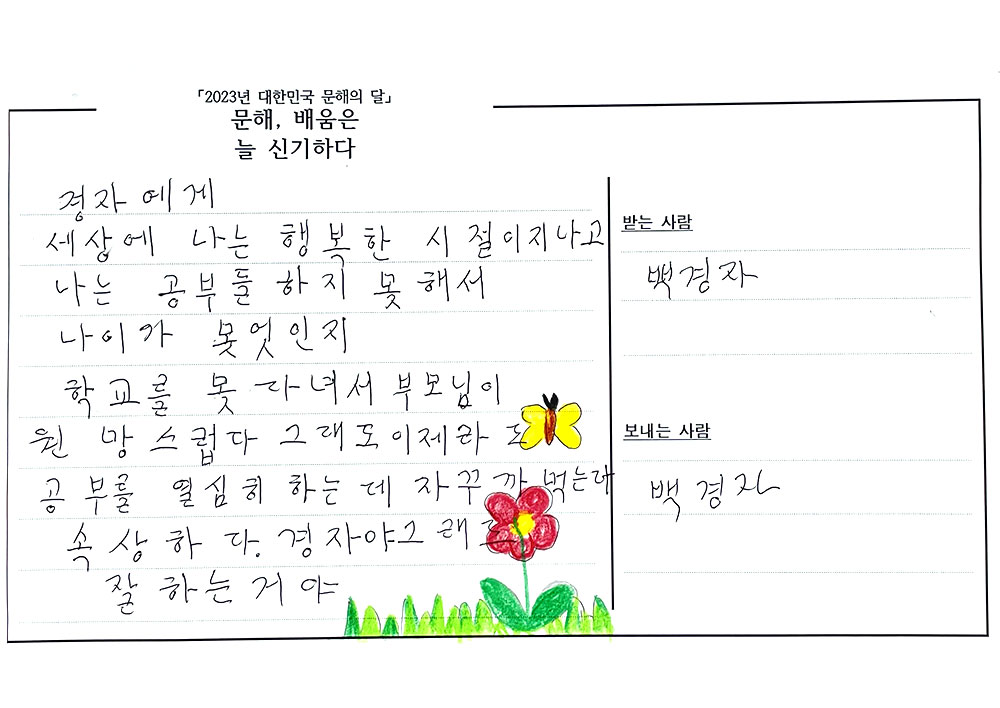 「2023년 대한민국 문해의 달」
문해, 배움은
늘 신기하다
경자에게
세상에 나는 행복한 시절이지나고
나는 공부들 하지 못해서
나이가 뭇엇인지
학교를 못 다녀서 부모님이
원망스럽다 그래도이제라도
공부를 열심히 하는데 자꾸까먹는다
속상하다. 경자야그래도
잘하는거야
받는 사람
백경자
보내는 사람
백경자